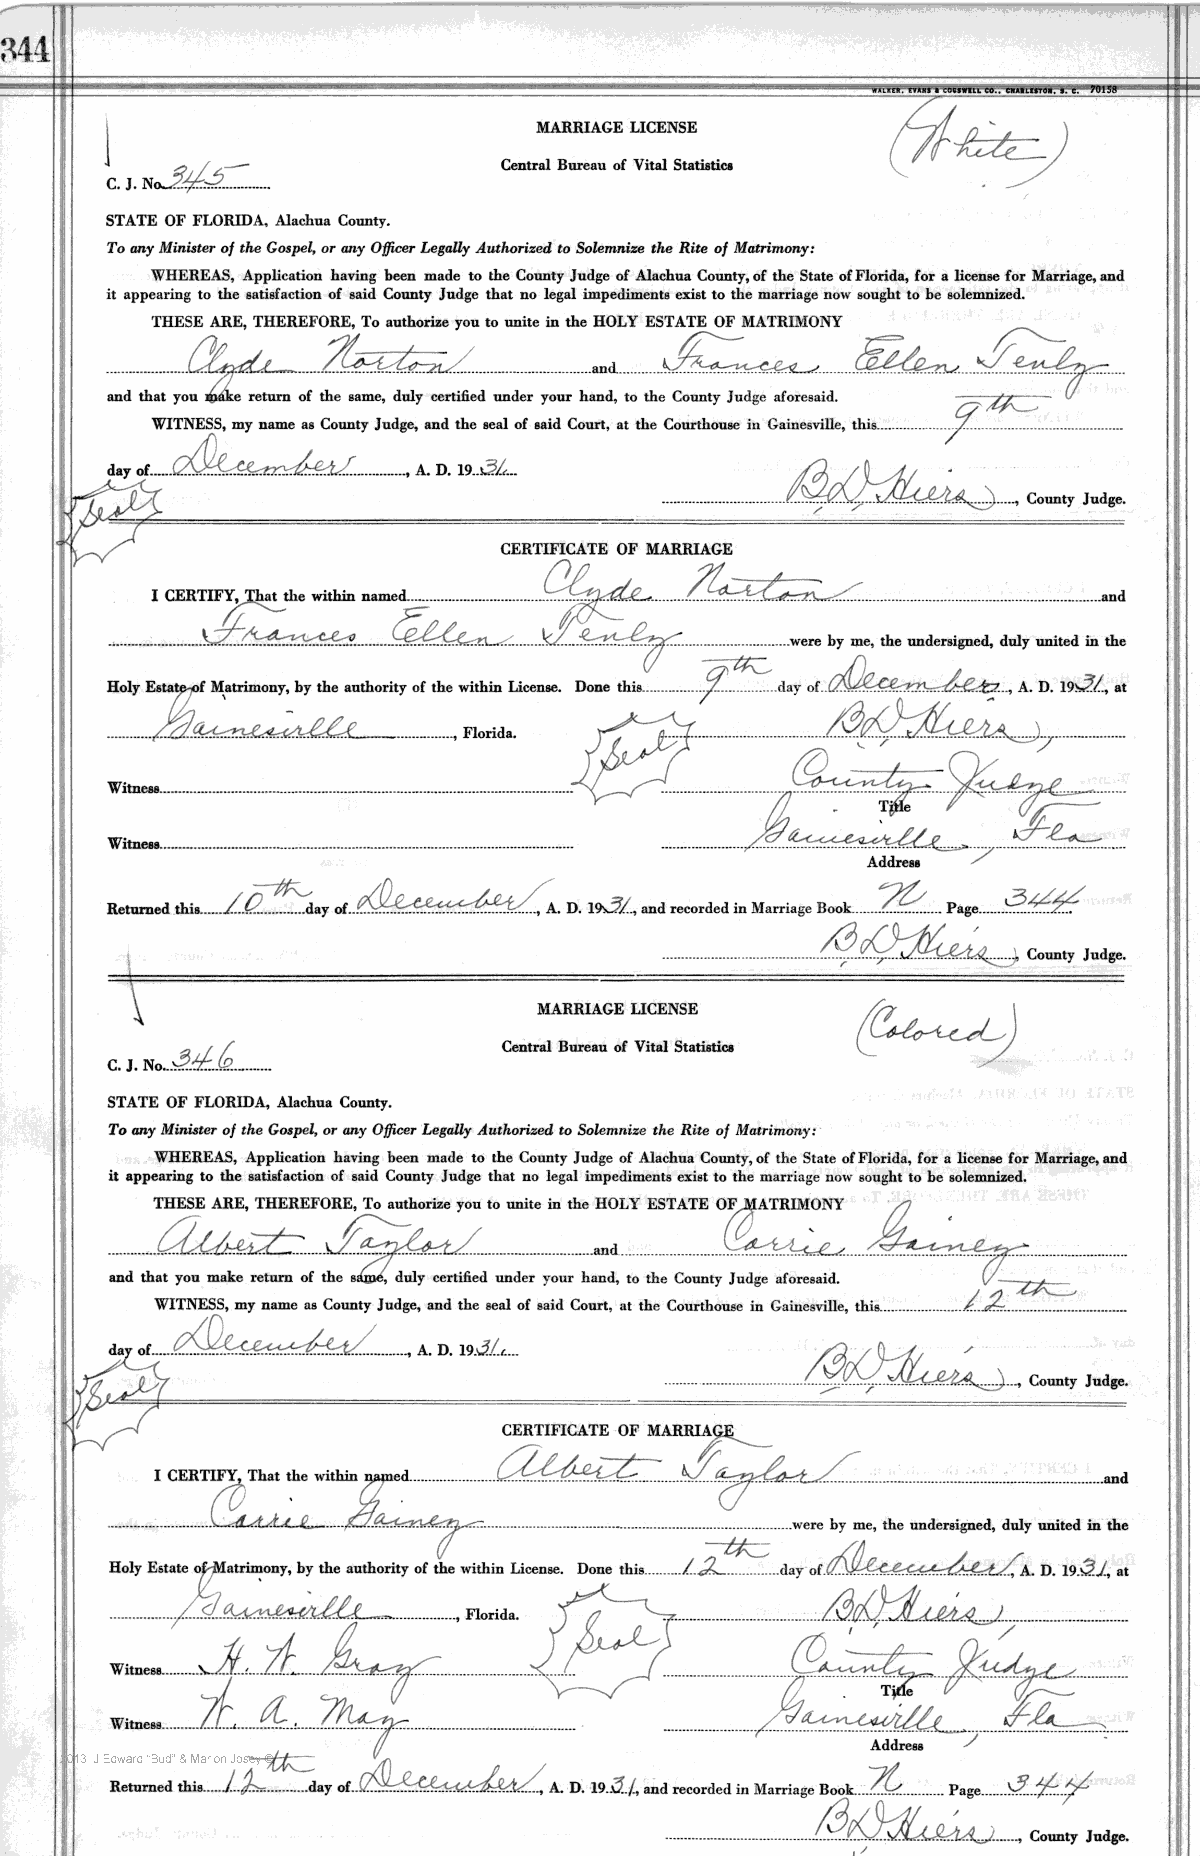 344
WALKER, EVANS & COGSWELL CO., CHARLESTON, S. C. 70158
MARRIAGE LICENSE
(White)
Central Bureau of Vital Statistics
C. J. No. 345
STATE OF FLORIDA, Alachua County.
To any Minister of the Gospel, or any Officer Legally Authorized to Solemnize the Rite of Matrimony:
WHEREAS, Application having been made to the County Judge of Alachua County, of the State of Florida, for a license for Marriage, and
it appearing to the satisfaction of said County Judge that no legal impediments exist to the marriage now sought to be solemnized.
THESE ARE, THEREFORE, To authorize you to unite in the HOLY ESTATE OF MATRIMONY
Clyde Norton and Frances Ellen Tenly
and that you make return of the same, duly certified under your hand, to the County Judge aforesaid.
WITNESS, my name as County Judge, and the seal of said Court, at the Courthouse in Gainesville, this 9th
day of December, A. D. 1931.
B D Hiers, County Judge.
Seal
CERTIFICATE OF MARRIAGE
I CERTIFY, That the within named Clyde Norton and
Frances Ellen Tenly were by me, the undersigned, duly united in the
Holy Estate of Matrimony, by the authority of the within License. Done this 9th day of December, A. D. 1931, at
Gainesville, Florida. Seal B D Hiers,
Witness County Judge
Title
Witness Gainesville, Fla
Address
Returned this 10th day of December, A. D. 1931, and recorded in Marriage Book N Page 344.
B D Hiers, County Judge.
MARRIAGE LICENSE
(Colored)
Central Bureau of Vital Statistics
C. J. No. 346
STATE OF FLORIDA, Alachua County.
To any Minister of the Gospel, or any Officer Legally Authorized to Solemnize the Rite of Matrimony:
WHEREAS, Application having been made to the County Judge of Alachua County, of the State of Florida, for a license for Marriage, and
it appearing to the satisfaction of said County Judge that no legal impediments exist to the marriage now sought to be solemnized.
THESE ARE, THEREFORE, To authorize you to unite in the HOLY ESTATE OF MATRIMONY
Albert Taylor and Carrie Gainey
and that you make return of the same, duly certified under your hand, to the County Judge aforesaid.
WITNESS, my name as County Judge, and the seal of said Court, at the Courthouse in Gainesville, this 12th
day of December, A. D. 1931.
B D Hiers, County Judge.
Seal
CERTIFICATE OF MARRIAGE
I CERTIFY, That the within named Albert Taylor and
Carrie Gainey were by me, the undersigned, duly united in the
Holy Estate of Matrimony, by the authority of the within License. Done this 12th day of December, A. D. 1931, at
Gainesville, Florida. Seal B D Hiers,
Witness H. W. Gray County Judge
Title
Witness W. A. May Gainesville, Fla
Address
2013 J Edward "Bud" & Marion Josey ©
Returned this 12th day of December, A. D. 1931, and recorded in Marriage Book N Page 344
B D Hiers, County Judge.